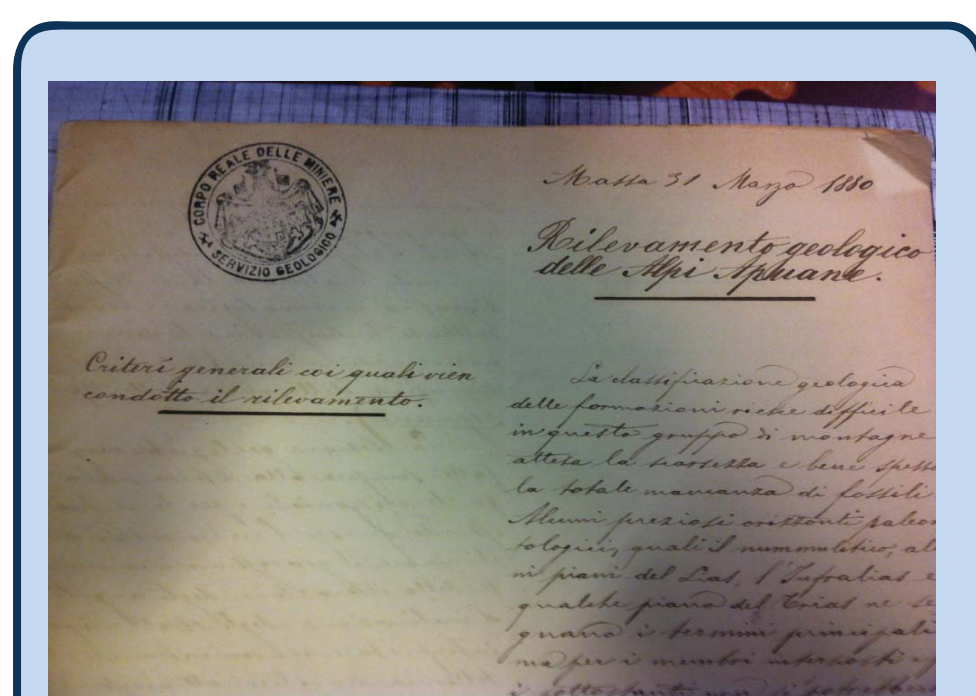 CORPO REALE DELLE MINIERE
SERVIZIO GEOLOGICO
Massa 31 Marzo 1880
Rilevamento geologico
delle Alpi Apuane.
Criterí generali coi quali vien
condotto il rilevamento.
La classificazione geologica
delle formazioni riesce difficile
in questo gruppo di montagne
attesa la scarsezza e bene spesso
la totale mancanza di fossili
Alcuni preziosi orizzonti paleon
tologici, quali il nummulitico, al
ni piani del Lias, l'Infralias e
qualche piano del Trias ne se
gnano i termini principali
ma per i membri interposti e
i sottostanti